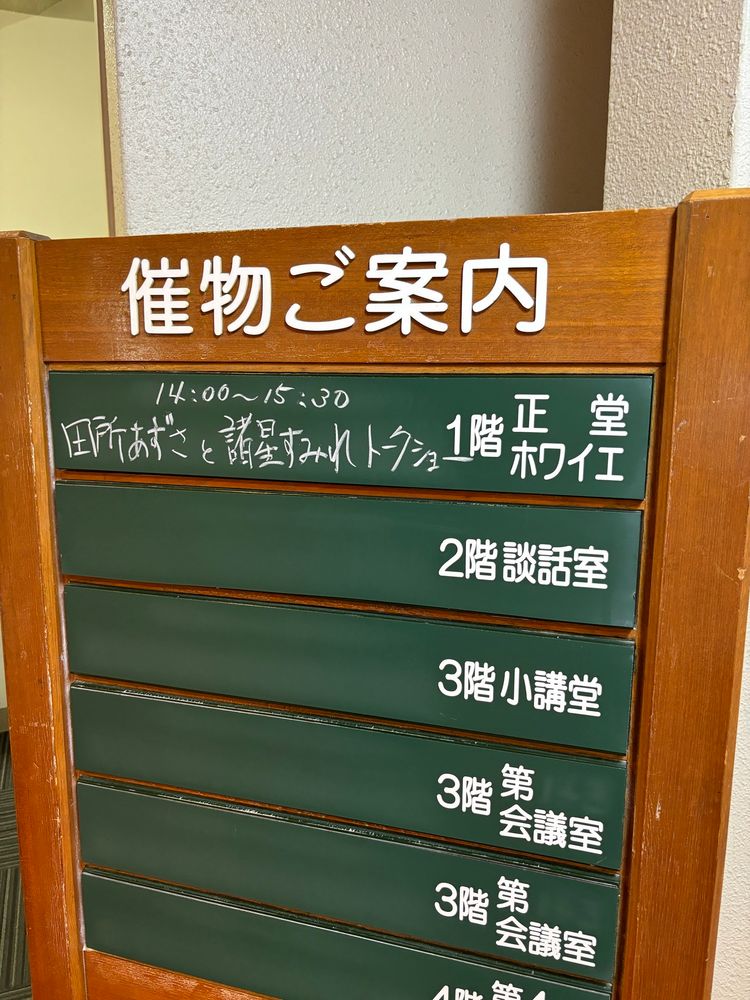 催物ご案内
14:00～15:30
田所あずさと諸星すみれトークショー
1階 正堂
ホワイエ
2階 談話室
3階 小講堂
3階 第
会議室
3階 第
会議室
4階 第4